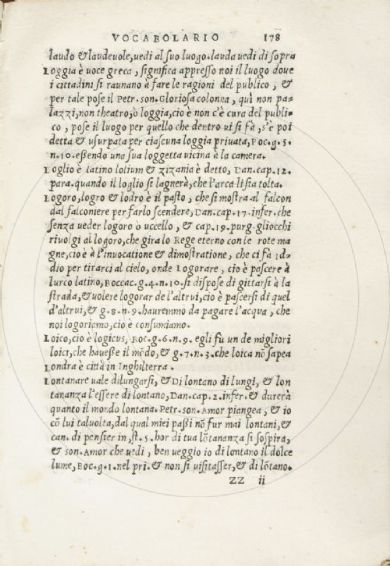 VOCABOLARIO 178
laudo & laudevole, vedi al suo luogo. lauda vedi di sopra
Loggia è voce greca, significa appresso noi il luogo dove
i cittadini si raunano à fare le ragioni del publico, &
per tale pose il Petr. son. Gloriosa colonna, quì non pa-
lazzi, non theatro, ò loggia, cio è non c'è cura del publi-
co, pose il luogo per quello che dentro vi si fà, s'è poi
detta & usurpata per ciascuna loggia privata, Boc. g. 5.
n. 10. essendo una sua loggetta vicina à la camera.
Loglio è latino lolium & zizania è detto, Dan. cap. 12.
para. quando il loglio si lagnerà, che l'arca li sia tolta.
Logoro, logro & lodro è il pasto, che si mostra al falcon
dal falconiere per farlo scendere, Dan. cap. 17. infer. che
senza veder logoro ò uccello, & cap. 19. purg. gliocchi
rivolgi al logoro, che gira lo Rege eterno con le rote ma
gne, cio è à l'invocatione & dimostratione, che ci fà Id-
dio per tirarci al cielo, onde Logorare, cio è pascere à
lurco latino, Boccac. g. 4. n. 10. si dispose di gittarsi à la
strada, & volere logorar de l'altrui, cio è pascersi di quel
d'altrui, & g. 8. n. 9. hauremmo da pagare l'acqua, che
noi logoriamo, cio è consumiamo.
Loico, cio è logicus, Boc. g. 6. n. 9. egli fu un de migliori
loici, che havesse il mõdo, & g. 7. n. 3. che loica nõ sapea
Londra è città in Inghilterra.
Lontanare vale dilungarsi, & Di lontano di lungi, & lon
tananza l'essere di lontano, Dan. cap. 2. infer. & durerà
quanto il mondo lontana. Petr. son. Amor piangea, & io
cõ lui talvolta, dal qual miei passi nõ fur mai lontani, &
can. di pensier in, st. 5. hor di tua lõtananza si sospira,
& son. Amor che vedi, ben veggio io di lontano il dolce
lume, Boc. g. 1. nel pri. & non si visitasser, & di lõtano.
ZZ ii